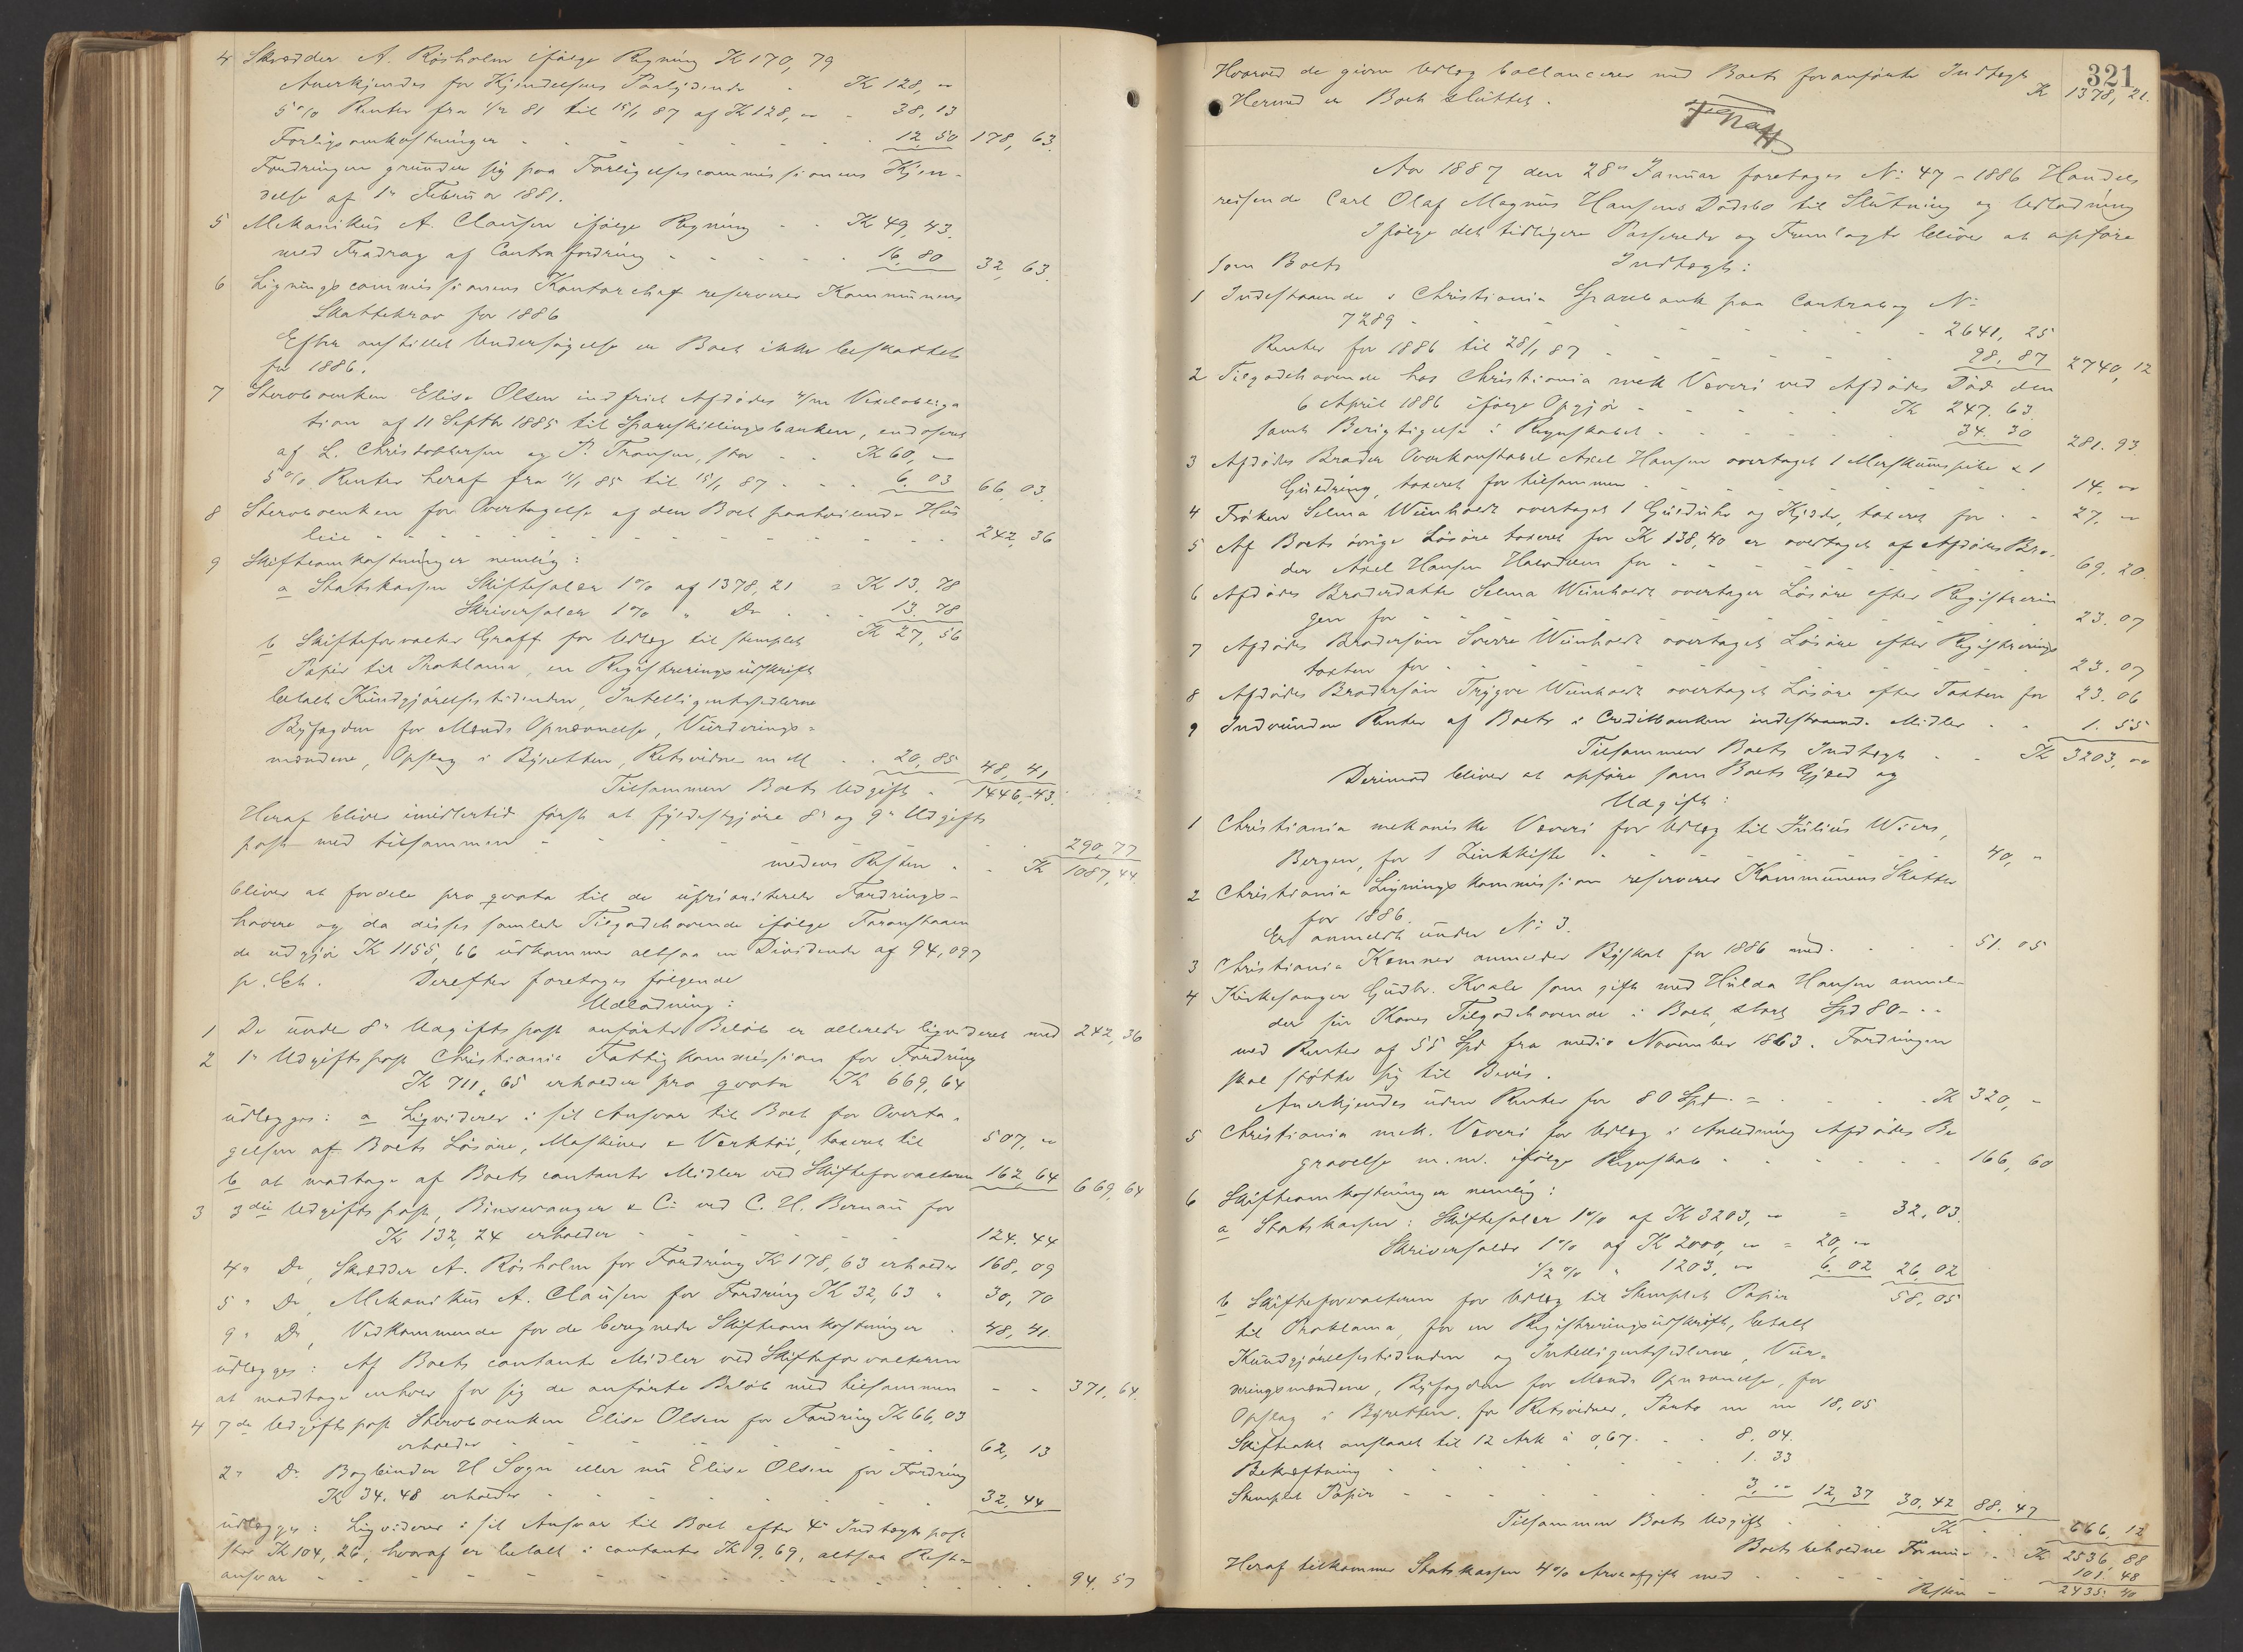 4 Skrædder A. Røsholm ifølge Regning K 170,79
Anerkjendes for Kjendelsens Paalydende - K 128, "
5 % Renter fra 1/2 81 til 15/1 87 af K 128, " - 38,13
Forligsomkostninger - 12,50 178,63.
Fordringen grunder sig paa Forligelsescommissionens Kjen-
delse af 1n Februar 1881.
5 Mekanikus A. Clausen ifølge Regning - - K 49,43.
med Fradrag af Contrafordring - 16,80 32,63.
6 Ligningscommissionens Kontorchef reserverer Kommunens
Skattekrav for 1886
Efter anstillet Undersøgelse er Boet ikke beskattet
for 1886.
7 Sterboenken Elise Olsen indfriet Afdødes 4/m Vexelobliga
tion af 11 Septbr 1885 til Spareskillingsbanken, endosseret
af L. Christophersen og P. Fransen, stor - - K 60, "
5 % Renter heraf fra 11/1 85 til 15/1 87 - - - 6.03 66,03.
8 Sterboenken for Overtagelse af den Boet paahvilende Hus
leie - 242,36
9 Skifteomkostninger nemlig:
a Statskassen Skiftesalær 1 % af 1378,21 = K 13,78
Skriversalær 1 % " Do - - 13.78
K 27,56
b Skifteforvalter Graff for Udlæg til stemplet
Papir til Proklama, en Registreringsudskrift
betalt Kundgjørelsestidenden, Intelligentssedlerne
Byfogden for Mænds Opnævnelse, Vurderings-
mændene, Opslag i Byretten, Retsvidner m M - - 20,85 48,41
Tilsammen Boets Udgift - 1446,43.
Heraf bliver imidlertid først at fyldestgjøre 8n og 9n Udgifts
post med tilsammen - 290,77
medens Resten - - K 1087,44.
bliver at fordele pro qvota til de uprioriterede Fordrings-
havere og da disses samlede Tilgodehavende ifølge Foranstaaen
de udgjør K 1155,66 udkommer altsaa en Dividende af 94,097
p. Ct. Derefter foretages følgende
Udlodning:
1 De under 8n Udgiftspost anførte Beløb er allerede ligvideret med 242,36
2 1n Udgiftspost Christiania Fattigkommission for Fordring
K 711,65 erholder pro qvota K 669,64
udlægges: a Ligviderer i sit Ansvar til Boet for Overta-
gelsen af Boets Løsøre, Maskiner & Verktøi, taxeret til 507, "
b at modtage af Boets contante Midler ved Skifteforvalteren 162,64 669,64
3 3die Udgiftspost, Binswanger & Co ved C. H. Bernau for
K 132,24 erholder - 124.44
4n Do, Skrædder A. Røsholm for Fordring K 178,63 erholder 168,09
5n Do, Mekanikus A. Clausen for Fordring K 32,63 " 30,70
9n Do, Vedkommende for de beregnede Skifteomkostninger - 48,41.
udlægges: Af Boets contante Midler ved Skifteforvalteren
at modtage enhver for sig de anførte Beløb med tilsammen - - 371,64.
4 7de Udgiftspost Sterboenken Elise Olsen for Fordring K 66,03
erholder - 62,13
2n Do Bogbinder H Sogn eller nu Elise Olsen for Fordring
K 34.48 erholder - 32,44
udlægges: Ligviderer i sit Ansvar til Boet efter 4n Indtægtspost
stor K 104,26, hvoraf er betalt i contanter K 9,69, altsaa Rest-
ansvar - 94.57
321
Hvorved de givne Udlæg ballancerer med Boets foranførte Indtægt K 1378,21.
Hermed er Boet sluttet.
Graff
Aar 1887 den 28n Januar foretages No 47 - 1886 Handels
reisende Carl Olaf Magnus Hansens Dødsbo til Slutning og Udlodning
Ifølge det tidligere Passerede og Fremlagte bliver at opføre
som Boets Indtægt:
1 Indestaaende i Christiania Sparebank paa Contrabog No
7289 - 2641,25
Renter for 1886 til 28/1 87 - 98,87 2740,12
2 Tilgodehavende hos Christiania mek Væveri ved Afdødes Død den
6 April 1886 ifølge Opgjør - K 247.63.
samt Berigtigelse i Regnskabet - 34.30 281.93.
3 Afdødes Broder Overkonstabel Axel Hansen overtaget 1 Merskumspibe & 1
Guldring, taxeret for tilsammen - 14, "
4 Frøken Selma Weinholdt overtaget 1 GuldUhr og Kjæde, taxeret for - - 27, "
5 Af Boets øvrige Løsøre taxeret for K 138,40 er overtaget af Afdødes Bro-
der Axel Hansen Halvdelen for - 69.20.
6 Afdødes Broderdatter Selma Weinholdt overtager Løsøre efter Registrerin
gen for - 23.07
7 Afdødes Brodersøn Sverre Weinholdt overtaget Løsøre efter Registrerings
taxten for - 23.07
8 Afdødes Brodersøn Trygve Weinholdt overtaget Løsøre efter Taxten for 23.06
9 Indvundne Renter af Boets i Creditbanken indestaaende Midler - - 1.55
Tilsammen Boets Indtægt - - K 3203, "
Derimod bliver at opføre som Boets Gjæld og
Udgift:
1 Christiania mekaniske Væveri for Udlæg til Julius Wiers,
Bergen, for 1 Zinkkiste - 40, "
2 Christiania Ligningskommission reserverer Kommunens Skatter
for 1886.
Er anmeldt under No 3.
3 Christiania Kemner anmelder Byskat for 1886 med - 51.05
4 Kirkesanger Gudbr. Kvale som gift med Hulda Hansen anmel-
der sin Kones Tilgodehavende i Boet, stort Spd 80 - - -
med Renter af 55 Spd fra medio November 1863. Fordringen
skal støtte sig til Bevis.
Anerkjendes uden Renter for 80 Spd = - K 320, -
5 Christiania mek. Væveri for Udlæg i Anledning Afdødes Be
gravelse m.m. ifølge Regnskab - 166,60
6 Skifteomkostninger nemlig:
a Statskassen: Skiftesalær 1 % af K 3203, " = 32,03.
Skriversalær 1 % af K 2000, " = 20, "
1/2 % " 1203, " 6.02 26,02
58,05
b Skifteforvalteren for Udlæg til Stemplet Papir
til Proklama, for en Registreringsudskrift, betalt
Kundgjørelsestidenden og Intelligentssedlerne, Vur-
deringsmændene, Byfogden for Mænds Opnævnelse, for
Opslag i Byretten, for Retsvidner, Porto m m 18,05
Skifteakt anslaaet til 12 Ark à 0,67 - - - 8.04.
Bekræftning - 1.33
Stemplet Papir - 3, " 12,37 30,42 88.47
Tilsammen Boets Udgift - K - - 666,12
Boets beholdne Formue - K 2536,88
Heraf tilkommer Statskassen 4 % Arveafgift med - 101.48
Resten - 2435.40